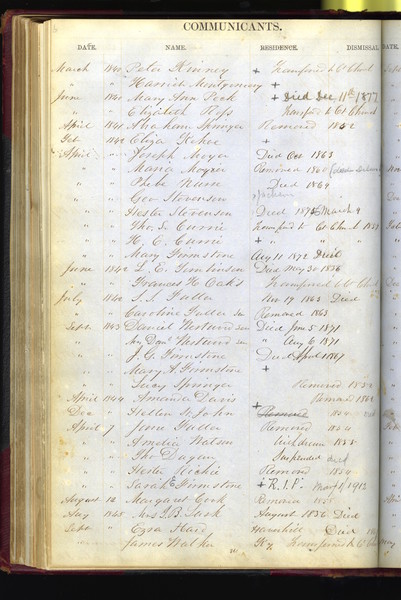 COMMUNICANTS.
DATE. NAME. RESIDENCE. DISMISSAL DATE.
March 1840 Peter Kinney + Transferred to Ct Church
" " Harriet Montgomery +
June 1840 Mary Ann Peck + Died Dec 11th 1877
" " Elizabeth Ross Transferd to Ct Church
April 1841 Abraham Springer Removed 1852
Feb 1842 Eliza Kehoe +
April " Joseph Moyer Died Oct 1863
" " Maria Moyer Removed 1860
" " Phebe Nurse Died 1869
" " Geo Stevenson
" " Hester Stevenson Died 1875 March 9
" " Tho. L. Currie Transferd to Ct Church 1859
" " H. C. Currie + " " "
" " Mary Firmstone Aug 11 1872 Died
June 1842 L. E. Tomlinson Died May 30 1856
" " Frances H Oaks Transferred to Ct Church
July 1840 S. S. Fuller Nov 17 1863 Died
" " Caroline Fuller Sen Removed 1863
Sept. 1843 Daniel Westwood Sen Died Jan 5 1871
" " Westwood Sen " Aug 6 1871
" " J. C. Firmstone Died April 1887
" " Mary A Firmstone +
" " Springer Removed 1852
April 1844 Amanda Davis + Removed
Dec " Hellen St John + Removed
April 7 Jane Fuller Removed 1854
" " Amelia Watson Withdrawn 1855
" " Tho Dugan Suspended died
" " Hester Richie Removed 1854
" " Sarah E Firmstone + R.I.P. Nov 1 1912
August 12 Margaret Cork Removed 1855
Aug 1845 Mrs J. B. Turk August 1856 Died
Sept " Ezra Hard Died
" James Walker Ky Transferred to Ct